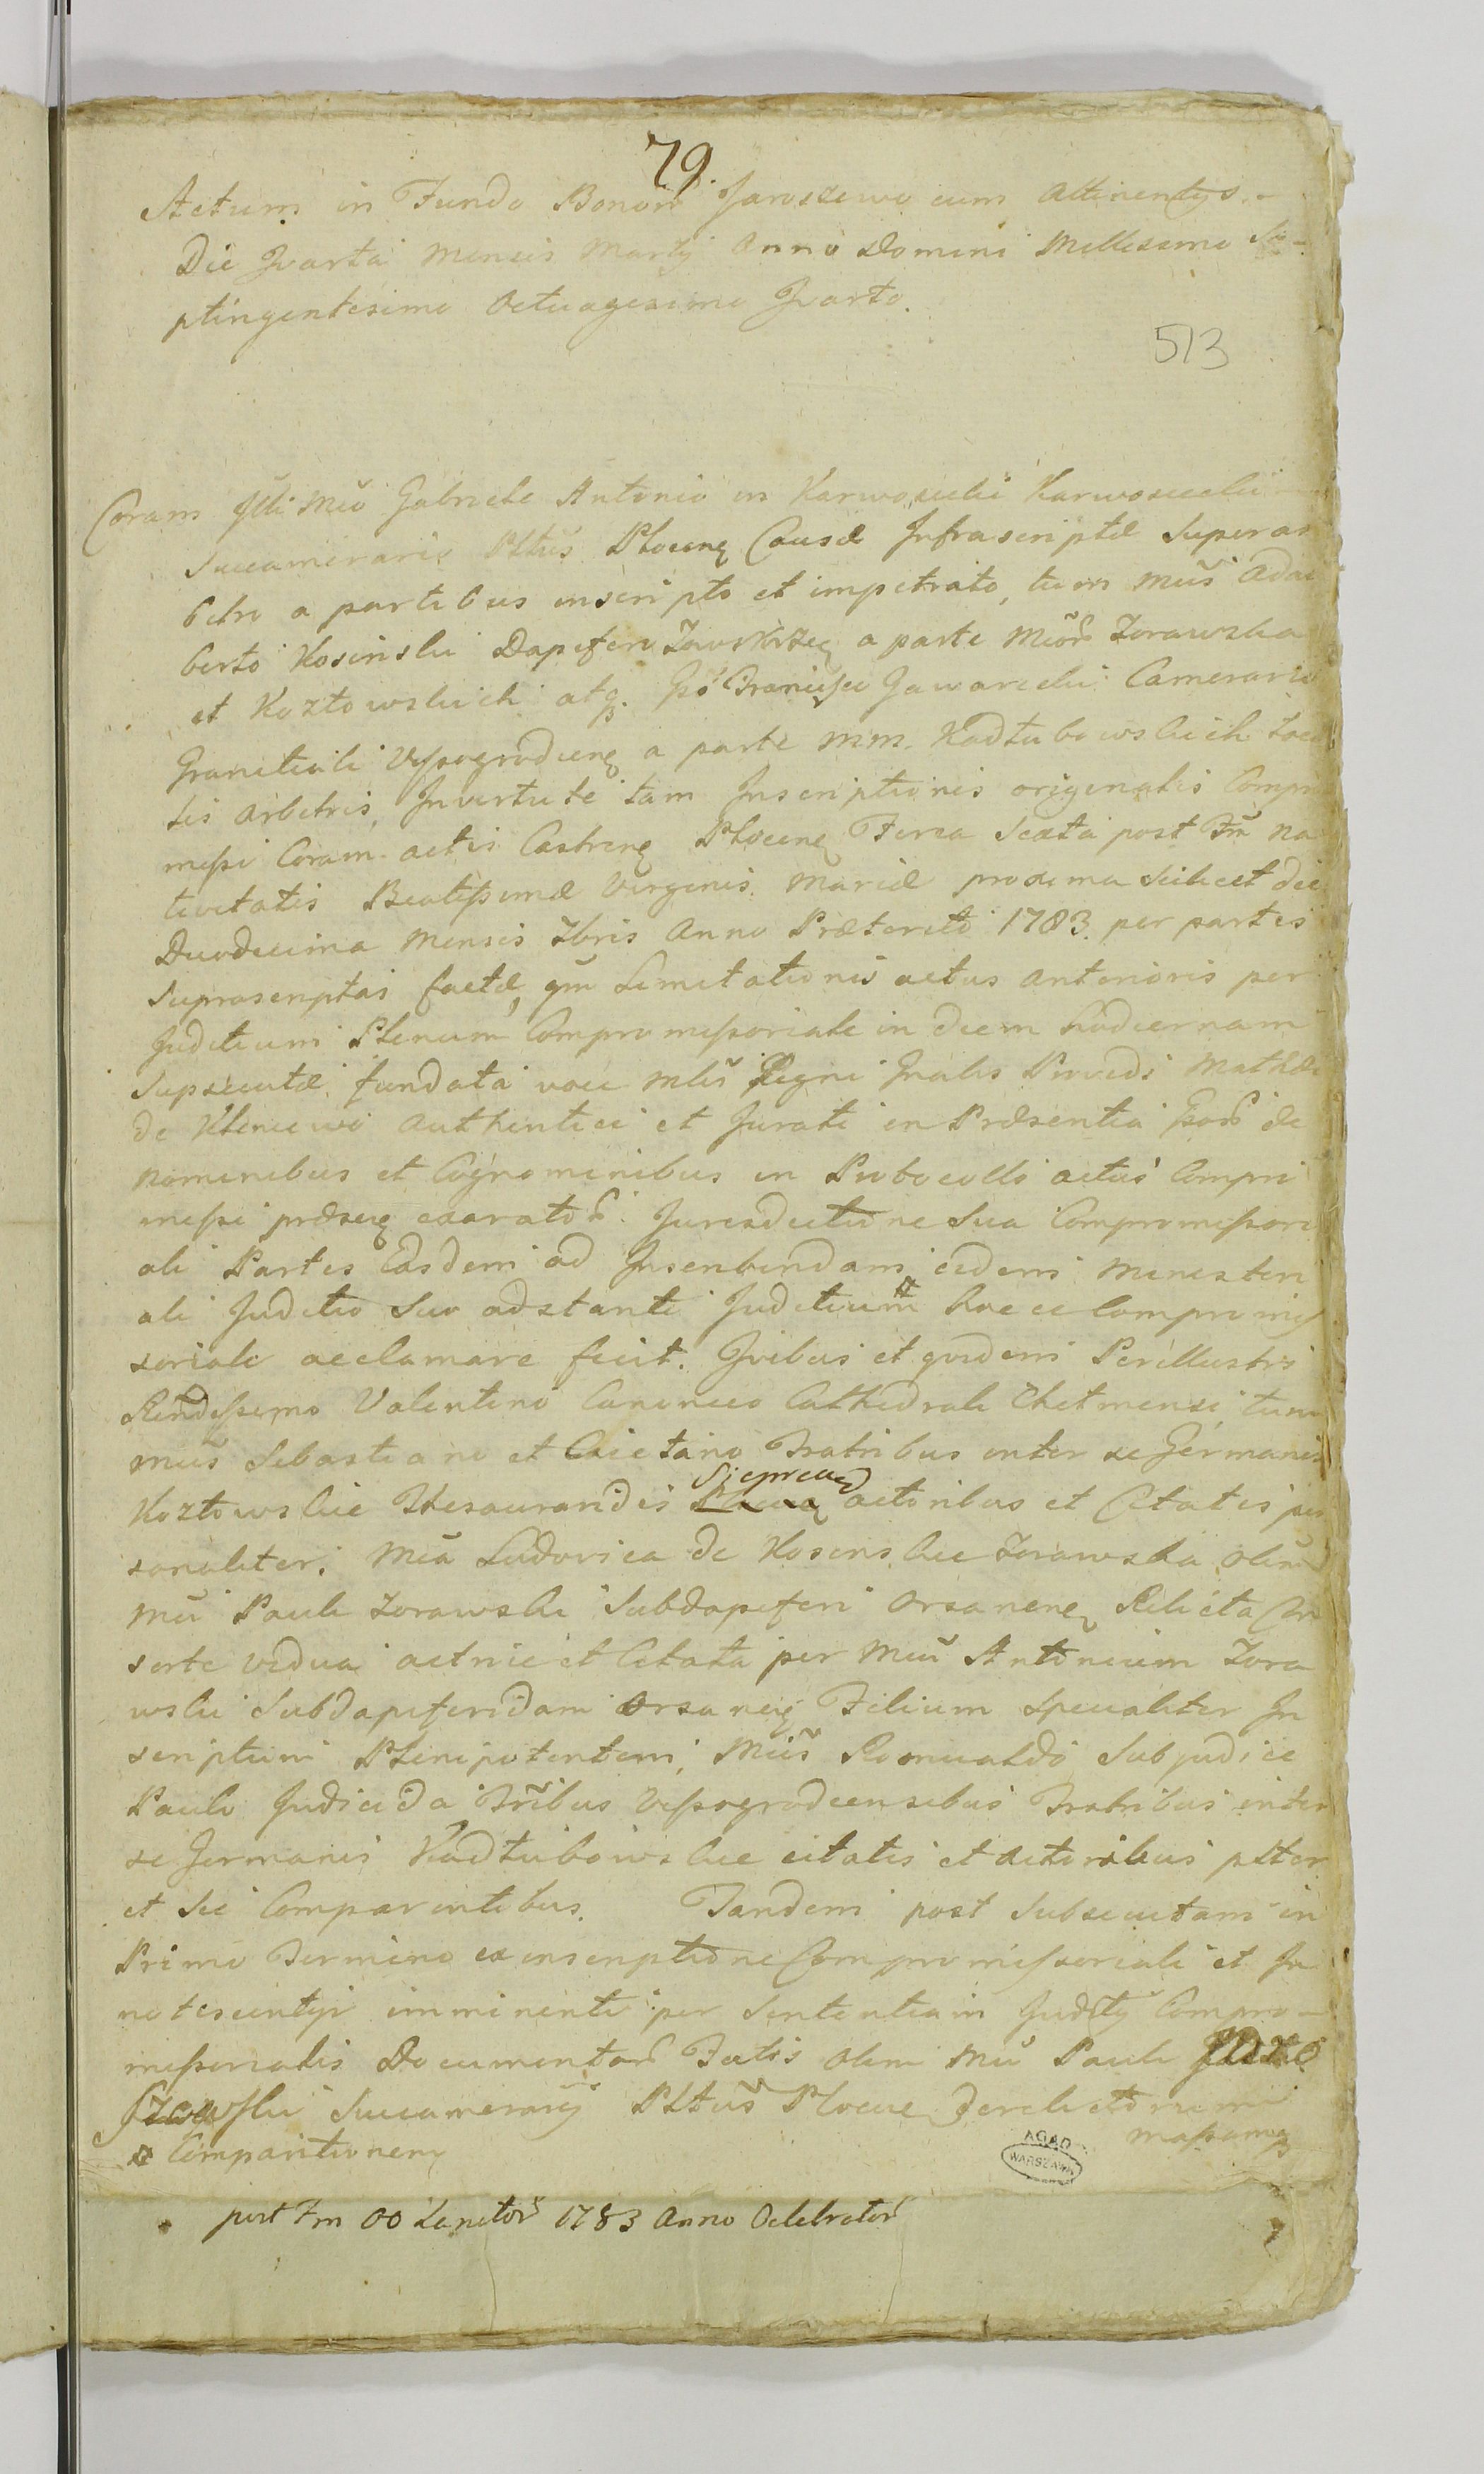 79.
Actum in Fundo Bonorũ Jaroszewo cum Attinentijs.-
Die Qvarta Mensis Martij Anno Domini Millesimo Se-
ptingentesimo Octuagesimo Qvarto.
513
Coram Illi Mẽo Gabriele Antonio in Karwosiecki Karwosiecki
Succamerario Pltũs Plocenę Causæ Infrascriptæ Superar
bitro a partibus inscripto et impetrato, tum Mẽis Adal
berto Kosinski Dapifero Zawskrzeę a parte Mẽorũ Zorawska
et Kozłowskich atq. Gsõ Francisco Gawarecki Camerario
Granitiali Vyssogrodienę a parte MM. Kadłubowskich Loca
tis Arbitris, In virtute tam Inscriptionis originalis Compro
missi Coram actis Castrenę Plocenę Feria Sexta post Fm̃ Na
tivitatis Beatissimæ Virginis Mariæ proxima Scilicet die
Duodecima Mensis 7bris Anno Præterito 1783. per partes
Suprascriptas factæ, qm̃ Limitationis actus anterioris per
Juditium Plenum Compromissoriale in diem hodiernam
Supsecutæ, fundata voce Mlis Regni Gnalis Providi Mathæi
de Kleniewo Authentici et Jurati in Præsentia Gsorũ de
Nominibus et Cognominibus in Protocollo actus Compro
missi præseę exaratorũ. Jurisdictione Sua Compromissori
ali Partes Easdem ad Inscribendam eidem Ministeri
ali Juditio Suo adstanti Juditium hocce Compromis
soriale acclamare fecit. Qvibus et qvidem Perillustri
Rendissimo Valentino Canonico Cathedrali Chelmensi, tum
Mẽis Sebastiano et Caietano Fratribus inter se Germanis
Siepreceũ
Kozłowskie Thesaurarides Plocenę actoribus et Citatis per
sonaliter, Mẽa Ludovica de Kosinskie Zorawska olim
Mẽi Pauli Zorawski Subdapiferi Orsanenę Relicta Con
sorte vidua actrice et Citata per Mẽum Antonium Zora
wski Subdapiferidam Orsaneę Filium Specialiter In
scriptum Plenipotentem, Mẽis Romualdo Subjudice
Paulo Judicida Trribus Vyssogrodiensibus Fratribus inter
se Germanis Kadłubowskie citatis et Actoribus plter
et Sic Comparentibus. Tandem post Subsecutam in
Primo Termino ex inscriptione Compromissoriali et In
notescentyi imminenti per Sententiam Juditij Compro-
missorialis Documentorũ Fatis olim Mẽi Pauli Jaro
szewski Succamerarij Pltũs Plocen Derelictorum
massamq
Comparitionem
AGAD
WARSZAWA
post Fm OO Sanctorũ 1783 Anno Celebratorũ